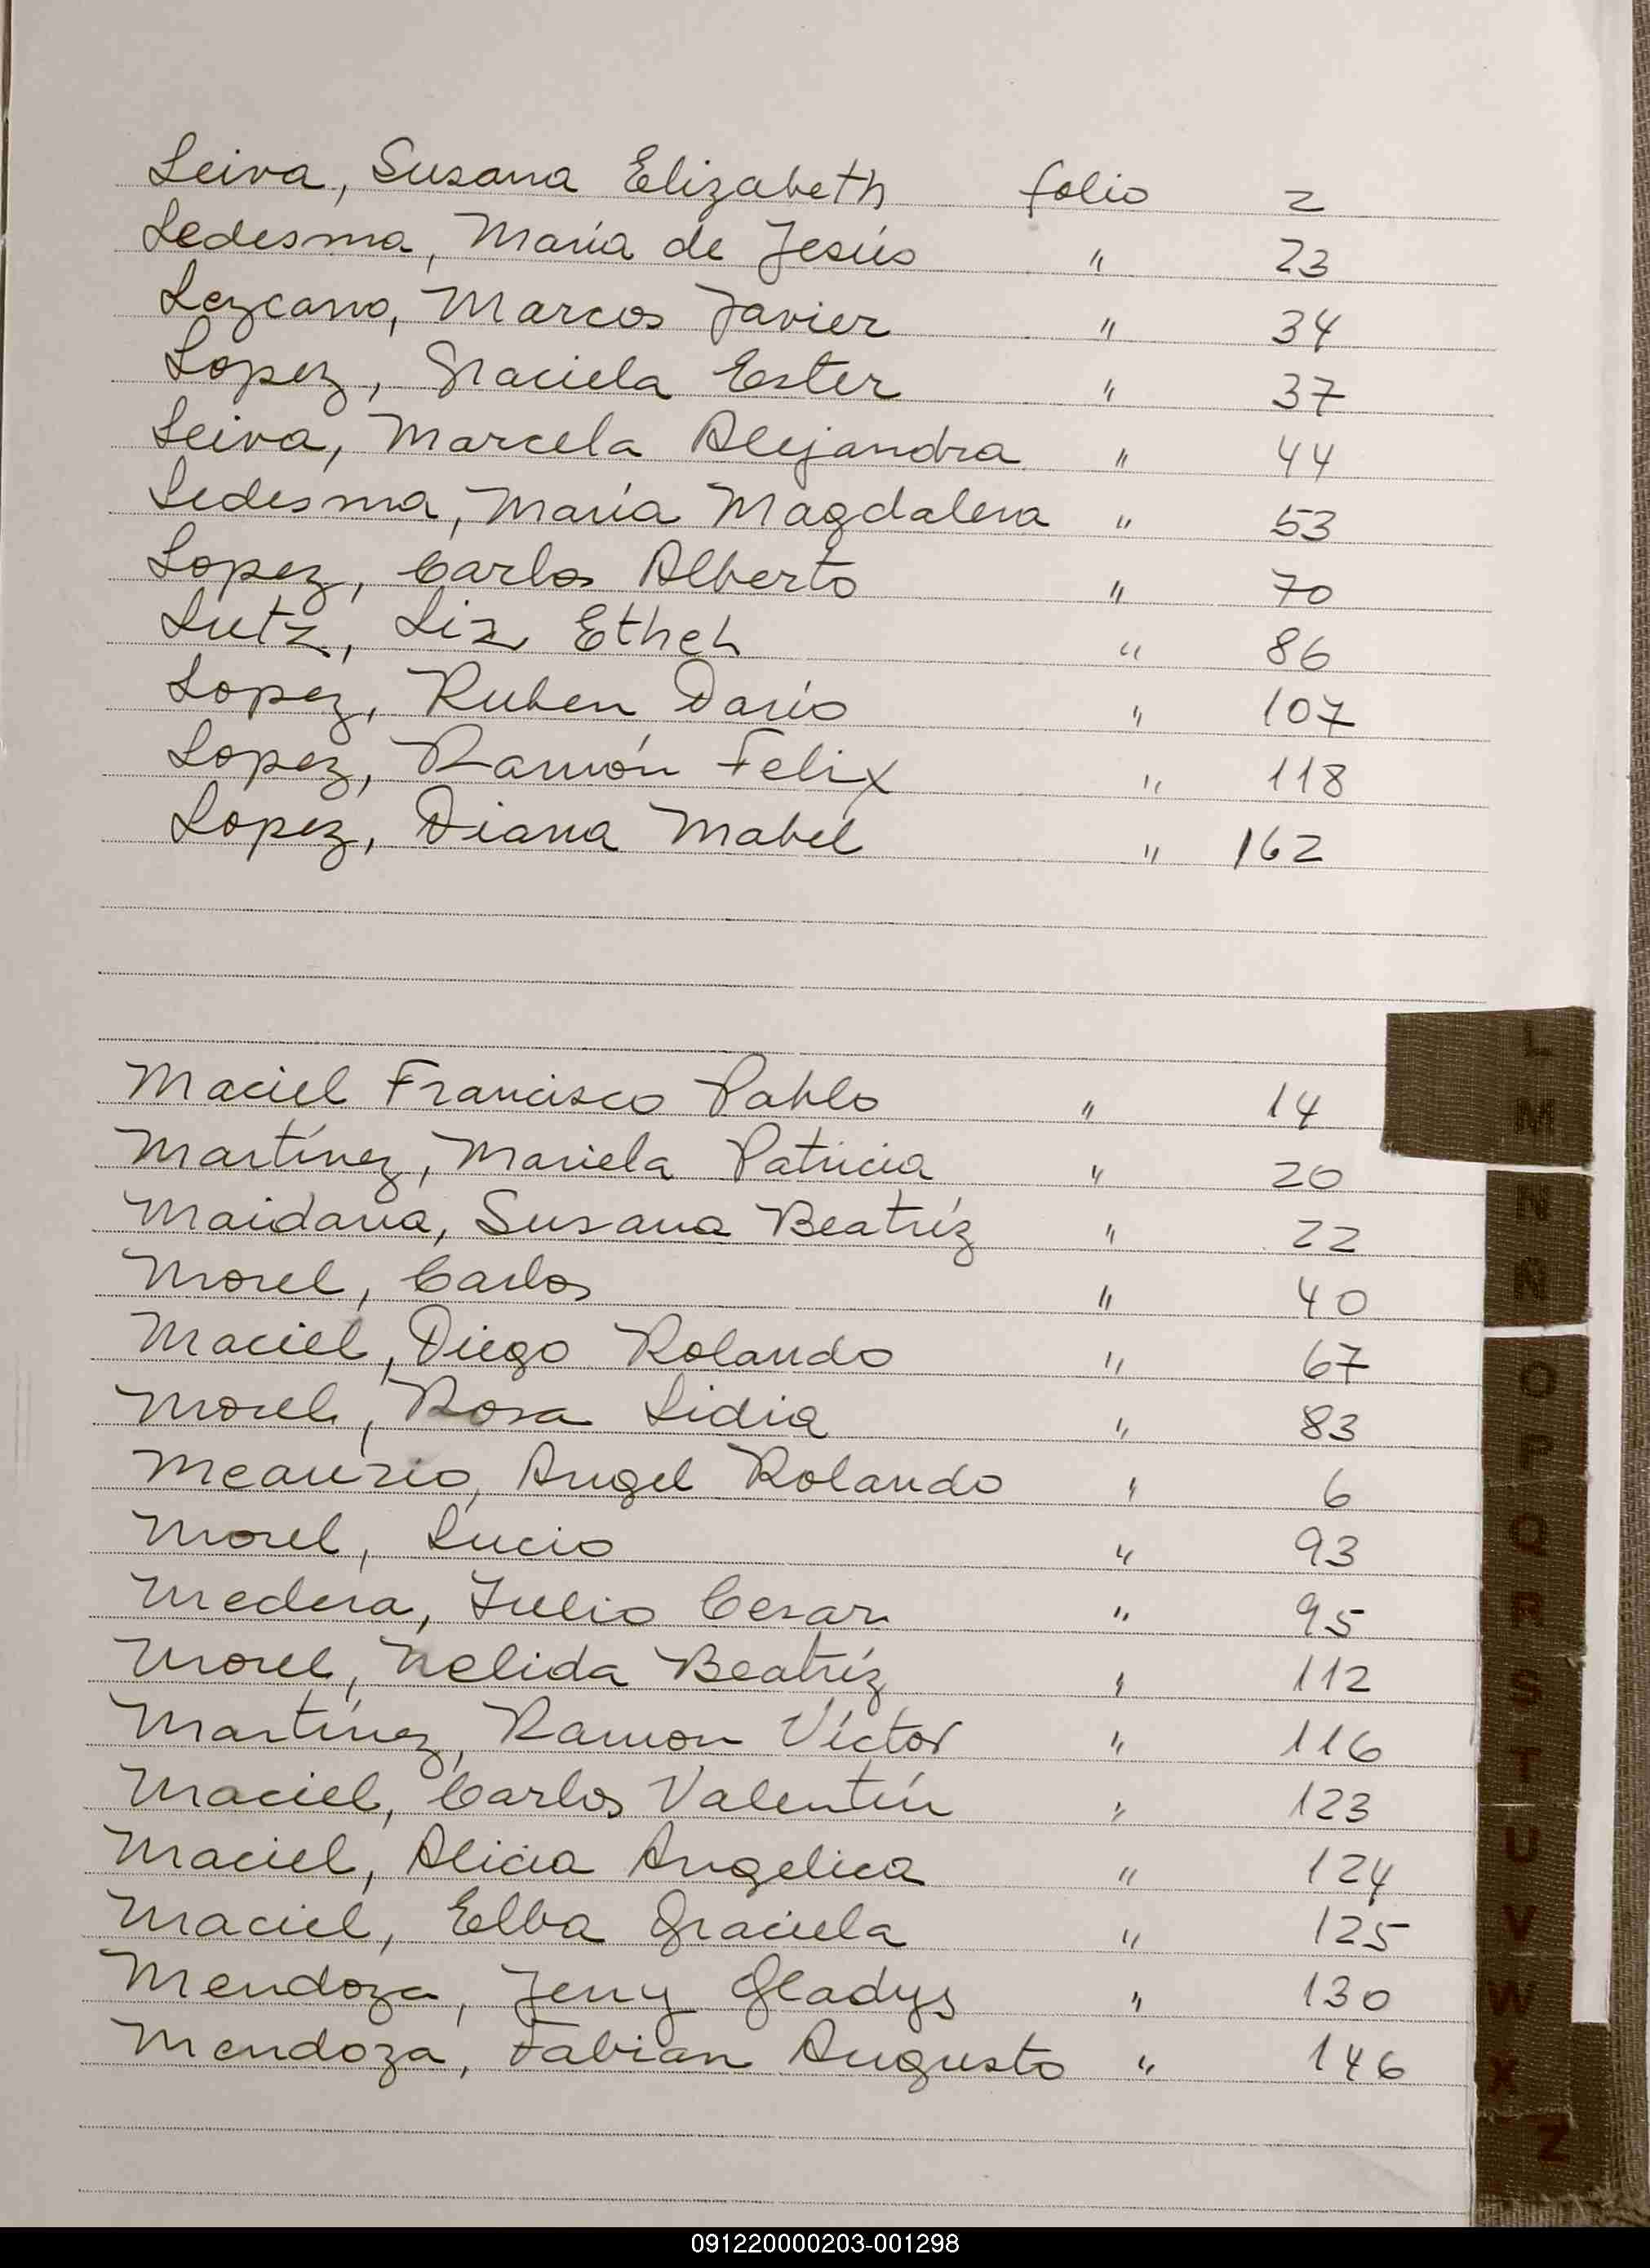 Leiva, Susana Elizabeth folio 2
Ledesma, María de Jesús " 23
Lezcano, Marcos Javier " 34
Lopez, Graciela Ester " 37
Leiva, Marcela Alejandra " 44
Ledesma, María Magdalena " 53
Lopez, Carlos Alberto " 70
Lutz, Liz Ethel " 86
Lopez, Ruben Darío " 107
Lopez, Ramón Felix " 118
Lopez, Diana Mabel " 162
Maciel Francisco Pablo " 14
Martínez, Mariela Patricia " 20
Maidana, Susana Beatríz " 22
Morel, Carlos " 40
Maciel, Diego Rolando " 67
Morel, Rosa Lidia " 83
Meaurio, Angel Rolando " 6
Morel, Lucio " 93
Medera, Julio Cesar " 95
Morel, Nelida Beatríz " 112
Martínez, Ramon Víctor " 116
Maciel, Carlos Valentín " 123
Maciel, Alicia Angelica " 124
Maciel, Elba Graciela " 125
Mendoza, Jeny Gladys " 130
Mendoza, Fabian Augusto " 146
L
M
N
Ñ
O
P
Q
R
S
T
U
V
W
X
Z
091220000203-001298